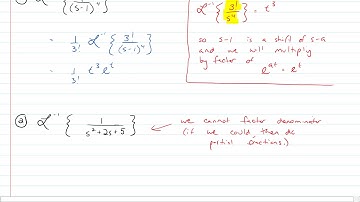 ℒ⁻¹ { 1/(s-1)⁴ }
ℒ⁻¹ { 3!/s⁴ } = t³
= 1/3! ℒ⁻¹ { 3!/(s-1)⁴ }
= 1/3! t³ eᵗ
so s-1 is a shift of s-a
and we will multiply
by factor of
eᵃᵗ = eᵗ
② ℒ⁻¹ { 1/(s²+2s+5) }
we cannot factor denominator
(if we could, then do
partial fractions.)